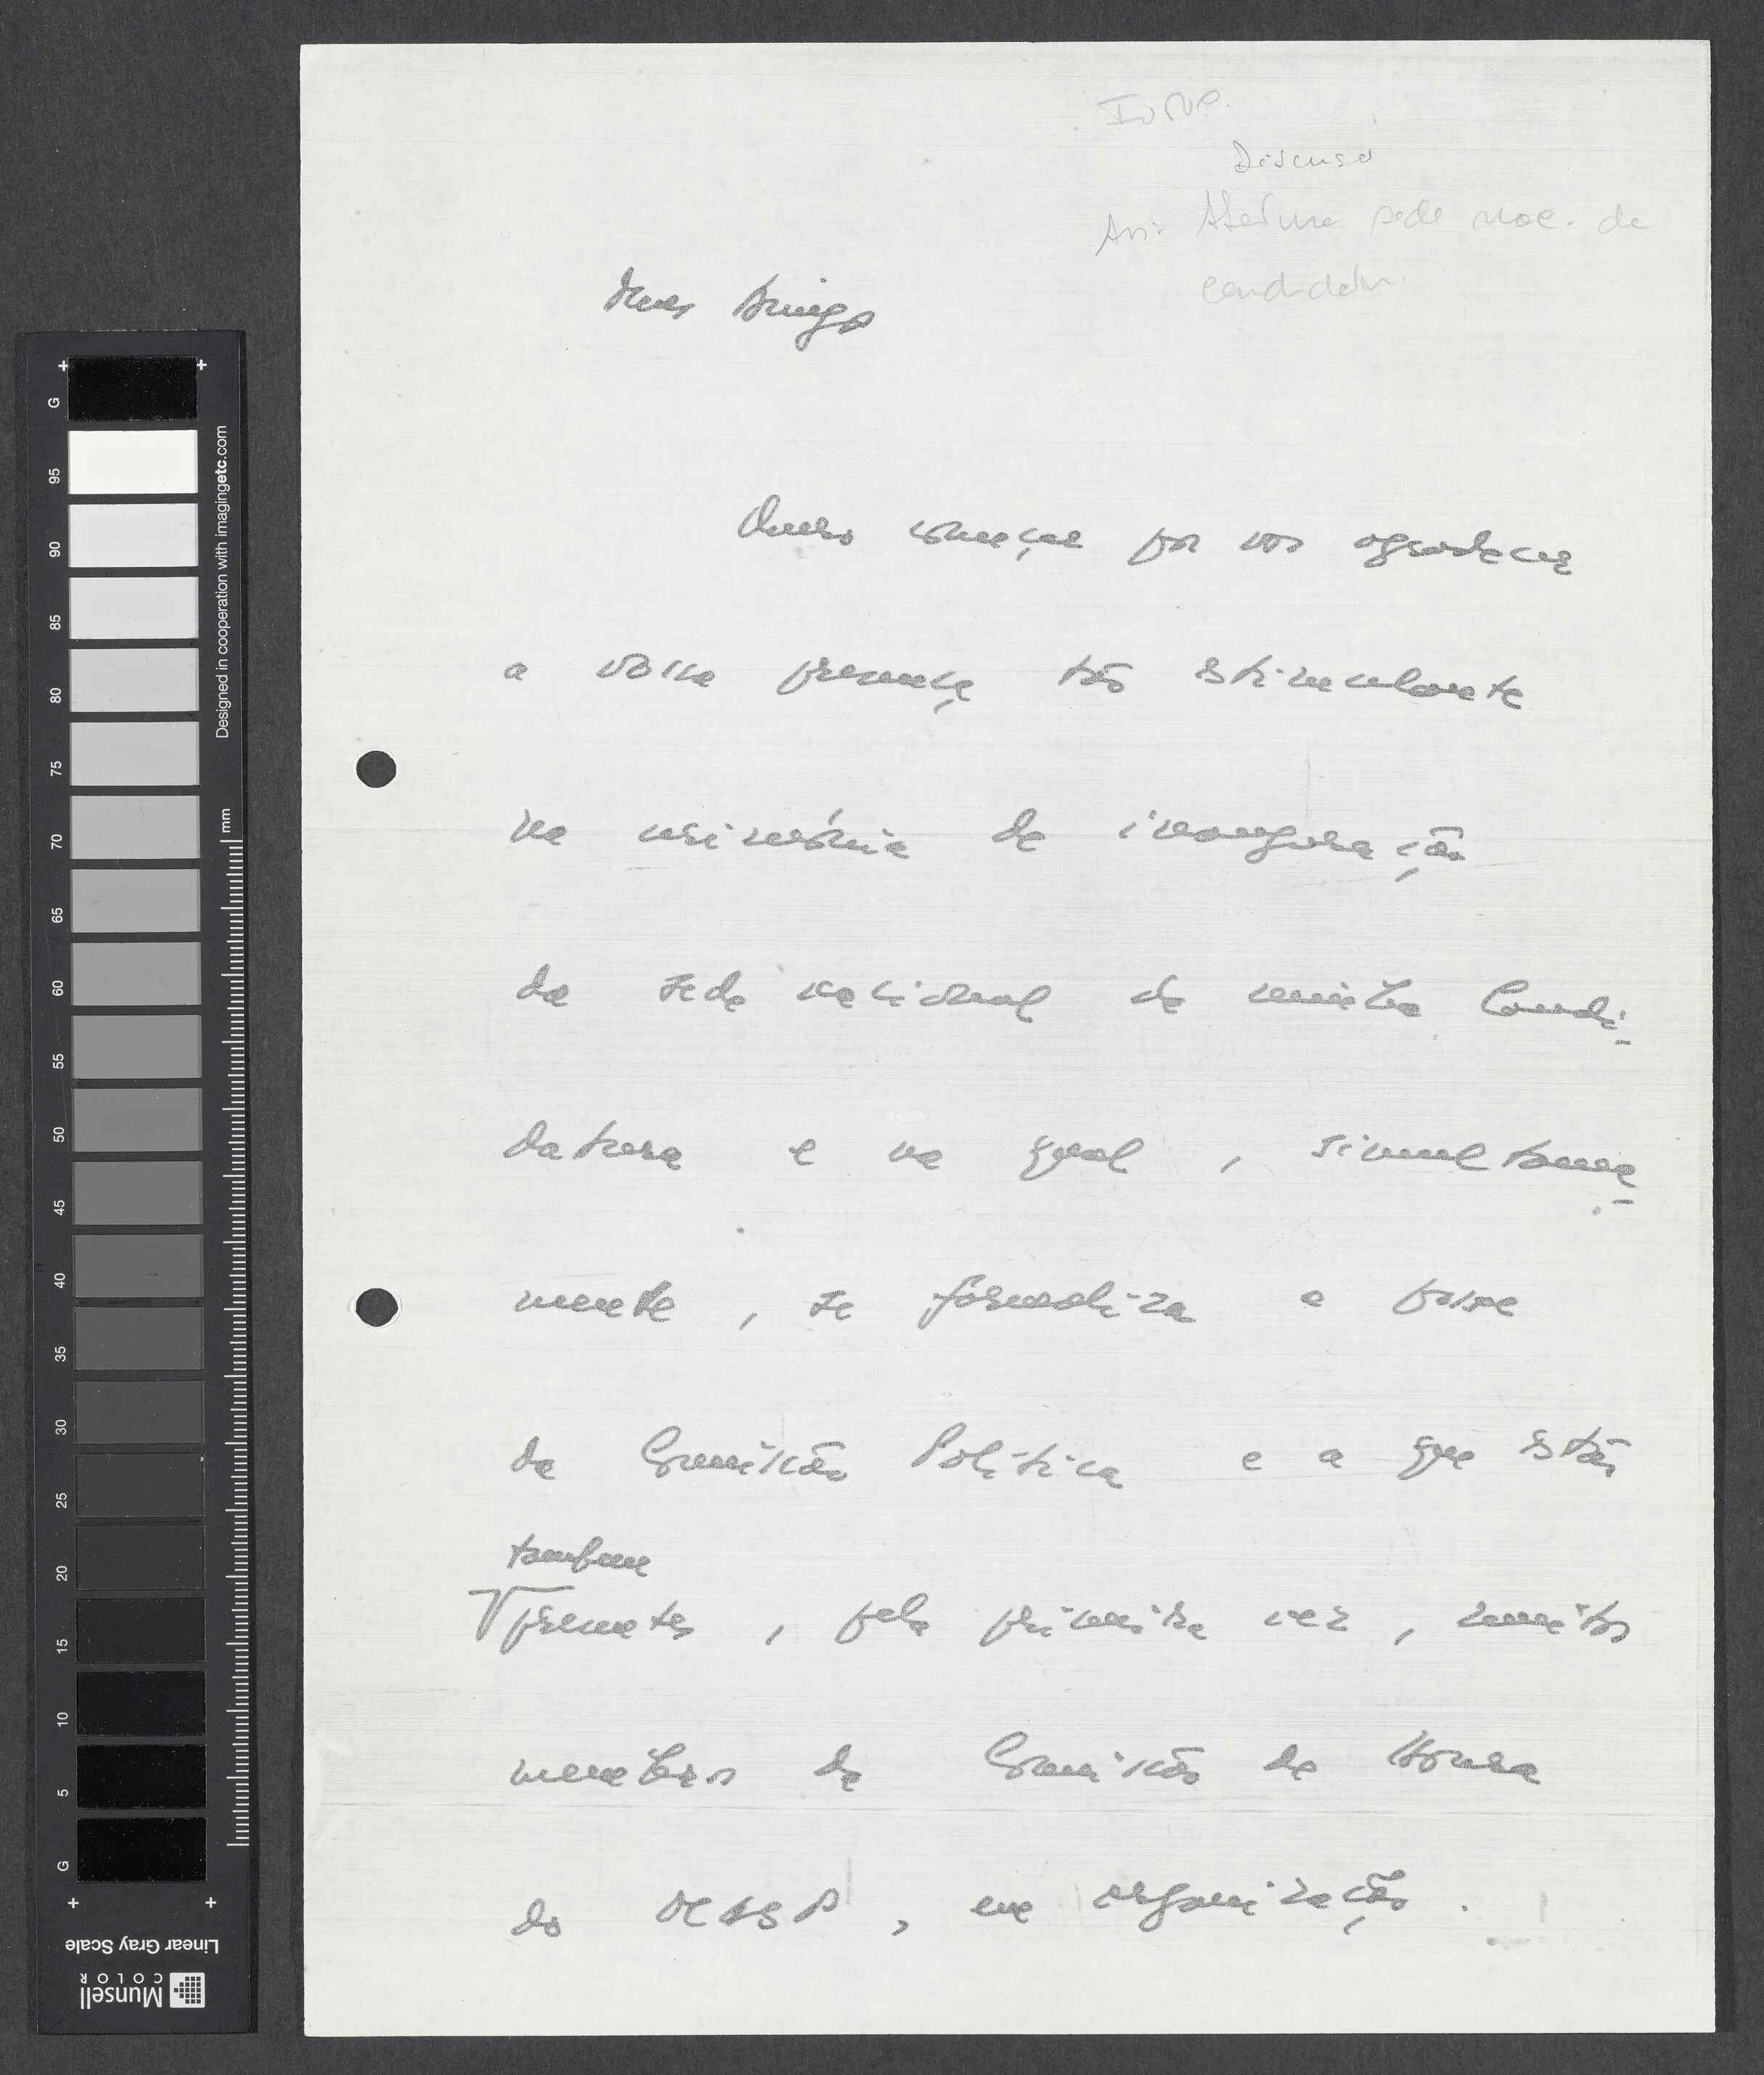 Discurso
Ass: Abertura sede nac. da
candidatura.
Meus Amigos
Quero começar por vos agradecer
a vossa presença tão estimulante
na cerimónia de inauguração
da sede nacional da minha Candi-
datura e na qual, simultanea-
mente, se formaliza a posse
da Comissão Política e a que estão
também
presentes, pela primeira vez, muitos
membros da Comissão de Honra
do MASP, em organização.
G 95 90 85 80 75 70 65 60 55 50 45 40 35 30 25 20 15 10 5 G
Designed in cooperation with imagingetc.com
mm
Munsell
COLOR
Linear Gray Scale